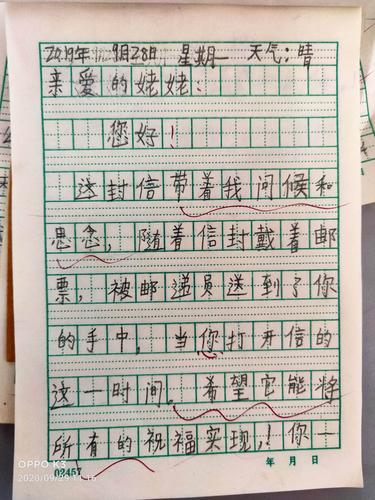 2019年9月28日 星期一 天气：晴
亲爱的姥姥：
您好！
这封信带着我问候和
思念，随着信封戴着邮
票，被邮递员送到了你
的手中，当你打开信的
这一时间。希望它能将
所有的祝福实现，！你一
年 月 日
02457
OPPO K3
2020/09/29 11:16